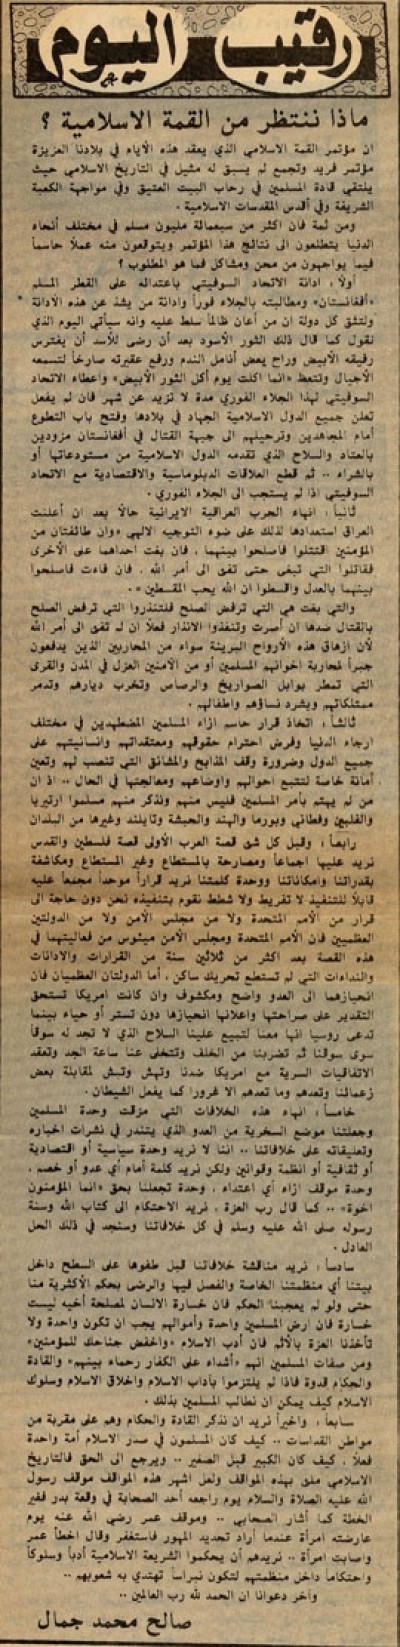 رقيب اليوم
ماذا ننتظر من القمة الاسلامية ؟
ان مؤتمر القمة الاسلامي الذي يعقد هذه الأيام في بلادنا العزيزة
مؤتمر فريد وتجمع لم يسبق له مثيل في التاريخ الاسلامي حيث
يلتقي قادة المسلمين في رحاب البيت العتيق وفي مواجهة الكعبة
الشريفة وفي أقدس المقدسات الاسلامية .
ومن ثمة فان اكثر من سبعمائة مليون مسلم في مختلف أنحاء
الدنيا يتطلعون الى نتائج هذا المؤتمر ويتوقعون منه عملا حاسما
فيما يواجهون من محن ومشاكل فما هو المطلوب ؟
أولا : ادانة الاتحاد السوفيتي باعتدائه على القطر المسلم
«أفغانستان» ومطالبته بالجلاء فورا وادانة من يشذ عن هذه الادانة
ولتثق كل دولة ان من أعان ظالما سلط عليه وانه سيأتي اليوم الذي
نقول كما قال ذلك الثور الأسود بعد أن رضي للأسد أن يفترس
رفيقه الأبيض وراح يعض أنامل الندم ورفع عقيرته صارخا لتسمعه
الأجيال وتتعظ «انما اكلت يوم أكل الثور الأبيض» واعطاء الاتحاد
السوفيتي لهذا الجلاء الفوري مدة لا تزيد عن شهر فان لم يفعل
تعلن جميع الدول الاسلامية الجهاد في بلادها وفتح باب التطوع
أمام المجاهدين وترحيلهم الى جبهة القتال في أفغانستان مزودين
بالعتاد والسلاح الذي تقدمه الدول الاسلامية من مستودعاتها أو
بالشراء .. ثم قطع العلاقات الدبلوماسية والاقتصادية مع الاتحاد
السوفيتي اذا لم يستجب الى الجلاء الفوري .
ثانيا : انهاء الحرب العراقية الايرانية حالا بعد ان أعلنت
العراق استعدادها لذلك على ضوء التوجيه الالهي «وان طائفتان من
المؤمنين اقتتلوا فاصلحوا بينهما ، فان بغت احداهما على الأخرى
فقاتلوا التي تبغى حتى تفئ الى أمر الله . فان فاءت فاصلحوا
بينهما بالعدل واقسطوا ان الله يحب المقسطين» .
والتي بغت هي التي ترفض الصلح فلتنذروا التي ترفض الصلح
بالقتال ضدها ان أصرت وتنفذوا الانذار فعلا ان لم تفئ الى أمر الله
لأن ازهاق هذه الأرواح البريئة سواء من المحاربين الذين يدفعون
جبرا لمحاربة اخوانهم المسلمين أو من الآمنين العزل في المدن والقرى
التي تمطر بوابل الصواريخ والرصاص وتخرب ديارهم وتدمر
ممتلكاتهم ويشرد نساؤهم واطفالهم .
ثالثا : اتخاذ قرار حاسم ازاء المسلمين المضطهدين في مختلف
ارجاء الدنيا وفرض احترام حقوقهم ومعتقداتهم وانسانيتهم على
جميع الدول وضرورة وقف المذابح والمشانق التي تنصب لهم وتعين
أمانة خاصة لتتبع احوالهم واوضاعهم ومعالجتها في الحال .. اذ ان
من لم يهتم بأمر المسلمين فليس منهم ونذكر منهم مسلموا ارتيريا
والفلبين وفطاني وبورما والهند والحبشة وتايلند وغيرها من البلدان
رابعا : وقبل كل شئ قصة العرب الأولى قصة فلسطين والقدس
نريد عليها اجماعا ومصارحة بالمستطاع وغير المستطاع ومكاشفة
بقدراتنا وامكاناتنا ووحدة كلمتنا نريد قرارا موحدا مجمعا عليه
قابلا للتنفيذ لا تفريط ولا شطط نقوم بتنفيذه نحن دون حاجة الى
قرار من الأمم المتحدة ولا من مجلس الأمن ولا من الدولتين
العظميين فان الأمم المتحدة ومجلس الأمن ميئوس من فعاليتهما في
هذه القصة بعد اكثر من ثلاثين سنة من القرارات والادانات
والنداءات التي لم تستطع تحريك ساكن ، أما الدولتان العظميان فان
انحيازهما الى العدو واضح ومكشوف وان كانت امريكا تستحق
التقدير على صراحتها واعلانها انحيازها دون تستر أو حياء بينما
تدعى روسيا انها معنا لتبيع علينا السلاح الذي لا تجد له سوقا
سوى سوقنا ثم تضربنا من الخلف وتتخلى عنا ساعة الجد وتعقد
الاتفاقيات السرية مع امريكا ضدنا وتهش وتبش لمقابلة بعض
زعمائنا وتعدهم وما تعدهم الا غرورا كما يفعل الشيطان .
خامسا : انهاء هذه الخلافات التي مزقت وحدة المسلمين
وجعلتنا موضع السخرية من العدو الذي يتندر في نشرات اخباره
وتعليقاته على خلافاتنا .. اننا لا نريد وحدة سياسية أو اقتصادية
أو ثقافية أو انظمة وقوانين ولكن نريد كلمة أمام أي عدو أو خصم ،
وحدة موقف ازاء أي اعتداء ، وحدة تجعلنا بحق «انما المؤمنون
اخوة» .. كما قال رب العزة ، نريد الاحتكام الى كتاب الله وسنة
رسوله صلى الله عليه وسلم في كل خلافاتنا وسنجد في ذلك الحل
العادل .
سادسا : نريد مناقشة خلافاتنا قبل طفوها على السطح داخل
بيتنا أي منظمتنا الخاصة والفصل فيها والرضى بحكم الأكثرية منا
حتى ولو لم يعجبنا الحكم فان خسارة الانسان لمصلحة أخيه ليست
خسارة فان ارض المسلمين واحدة وأموالهم يجب ان تكون واحدة ولا
تأخذنا العزة بالاثم فان أدب الاسلام «واخفض جناحك للمؤمنين»
ومن صفات المسلمين انهم «أشداء على الكفار رحماء بينهم» والقادة
والحكام قدوة فاذا لم يلتزموا بآداب الاسلام واخلاق الاسلام وسلوك
الاسلام كيف يمكن ان نطالب المسلمين بذلك .
سابعا : واخيرا نريد ان نذكر القادة والحكام وهم على مقربة من
مواطن القداسات .. كيف كان المسلمون في صدر الاسلام أمة واحدة
فعلا ، كيف كان الكبير قبل الصغير .. ويرجع الى الحق فالتاريخ
الاسلامي ملئ بهذه المواقف ولعل اشهر هذه المواقف موقف رسول
الله عليه الصلاة والسلام يوم راجعه أحد الصحابة في وقعة بدر فغير
الخطة كما أشار الصحابي .. وموقف عمر رضي الله عنه يوم
عارضته امرأة عندما أراد تحديد المهور فاستغفر وقال اخطأ عمر
واصابت امرأة .. نريدهم أن يحكموا الشريعة الاسلامية أدبا وسلوكا
واحتكاما داخل منظمتهم لتكون نبراسا تهتدي به شعوبهم ..
وآخر دعوانا ان الحمد لله رب العالمين ..
صالح محمد جمال